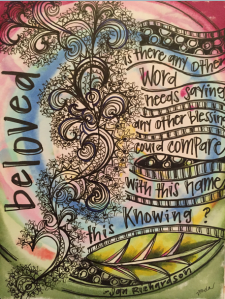 beloved
is there any other
word
needs saying,
any other blessing
could compare
with this name
this knowing?
-Jan Richardson